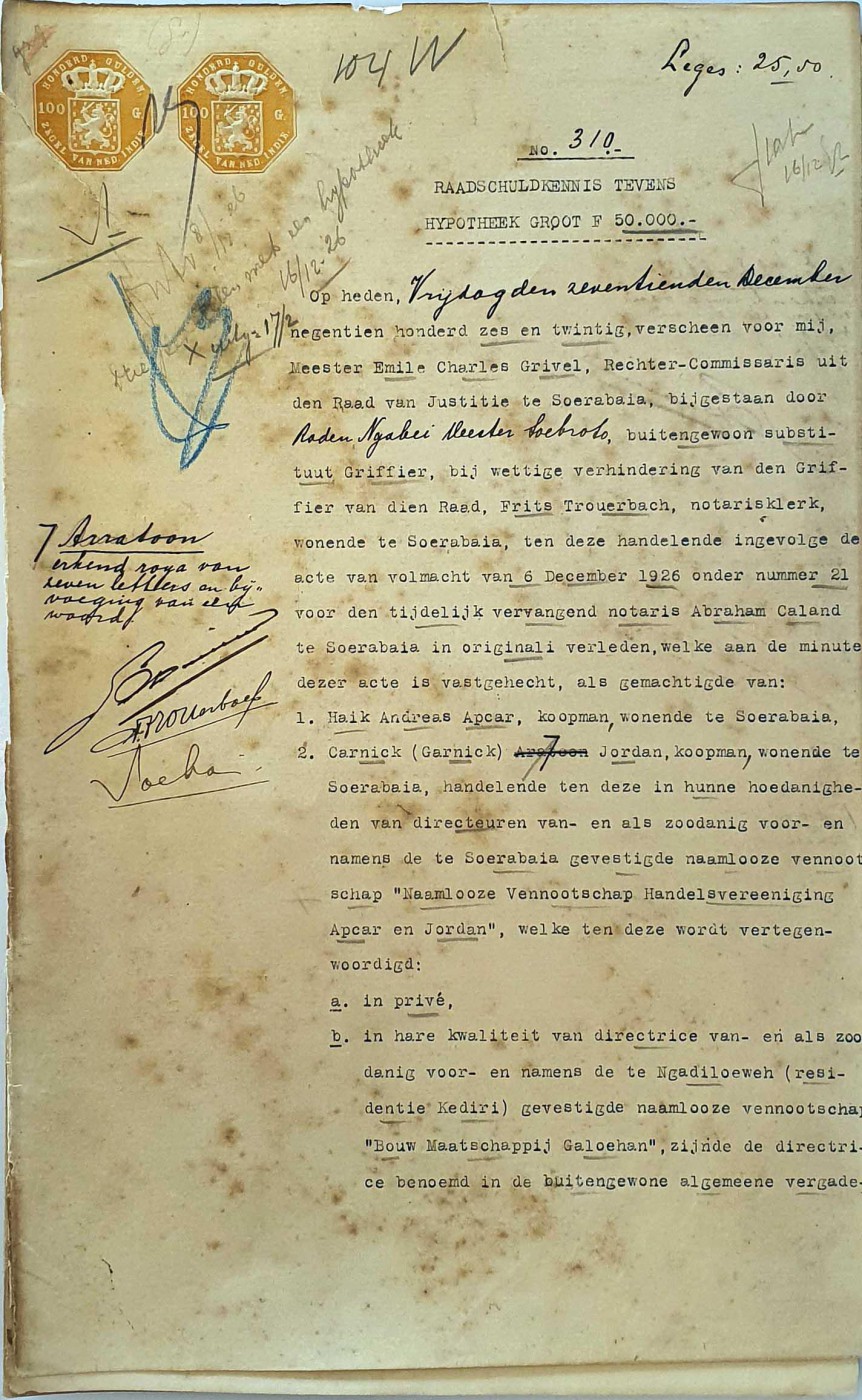 HONDERD GULDEN
100 G.
ZEGEL VAN NED. INDIE
HONDERD GULDEN
100 G.
ZEGEL VAN NED. INDIE
104 W
Leges: 25,50.
No. 310.-
16/12
RAADSCHULDKENNIS TEVENS
HYPOTHEEK GROOT F 50.000.-
met een hypotheek
16/12-26
X 17/2
Op heden, Vrijdag den zeventienden December
negentien honderd zes en twintig, verscheen voor mij,
Meester Emile Charles Grivel, Rechter-Commissaris uit
den Raad van Justitie te Soerabaia, bijgestaan door
Raden Ngabei Meester Soebroto, buitengewoon substi-
tuut Griffier, bij wettige verhindering van den Grif-
fier van dien Raad, Frits Trouerbach, notarisklerk,
wonende te Soerabaia, ten deze handelende ingevolge de
acte van volmacht van 6 December 1926 onder nummer 21
voor den tijdelijk vervangend notaris Abraham Caland
te Soerabaia in originali verleden, welke aan de minute
dezer acte is vastgehecht, als gemachtigde van:
1. Haik Andreas Apcar, koopman, wonende te Soerabaia,
2. Carnick (Garnick) Aratoon 7 Jordan, koopman, wonende te
Soerabaia, handelende ten deze in hunne hoedanighe-
den van directeuren van- en als zoodanig voor- en
namens de te Soerabaia gevestigde naamlooze vennoot
schap "Naamlooze Vennootschap Handelsvereeniging
Apcar en Jordan", welke ten deze wordt vertegen-
woordigd:
a. in privé,
b. in hare kwaliteit van directrice van- en als zoo
danig voor- en namens de te Ngadiloeweh (resi-
dentie Kediri) gevestigde naamlooze vennootschap
"Bouw Maatschappij Galoehan", zijnde de directri-
ce benoemd in de buitengewone algemeene vergade-
7 Arratoon
erkend roya van
zeven letters en bij-
voeging van een
woord
F. Trouerbach
Soebro